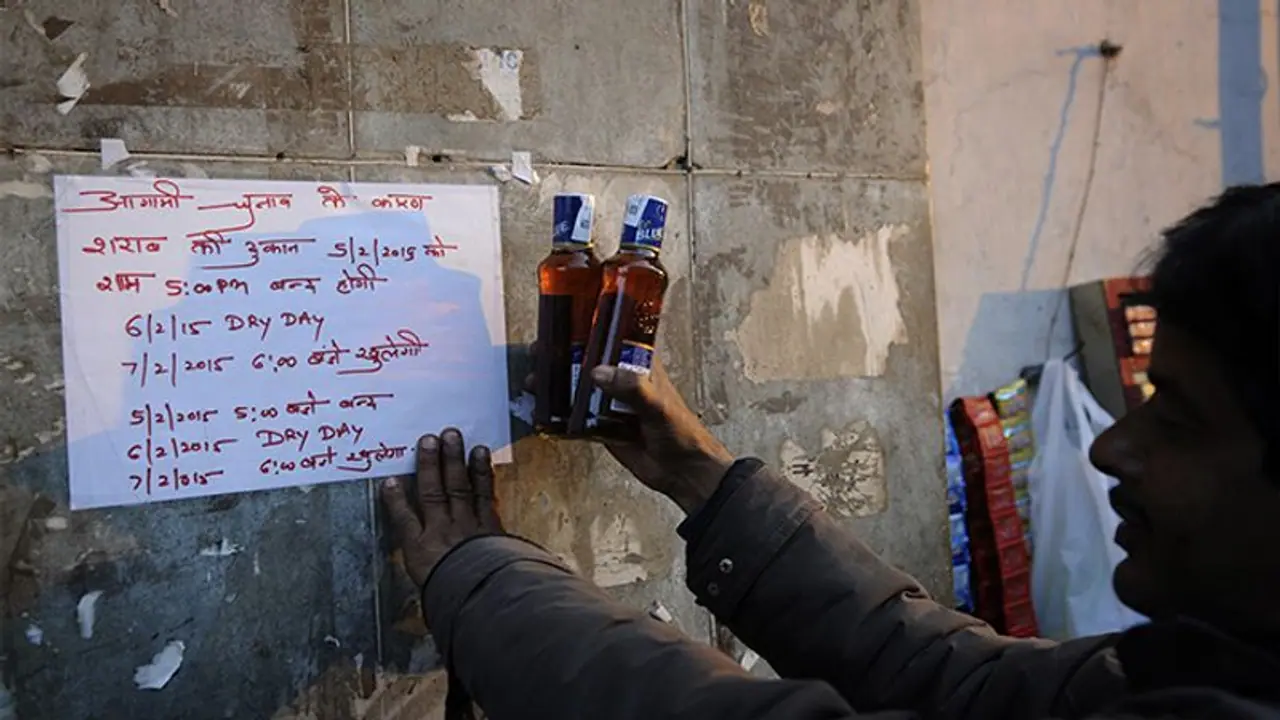 आगामी चुनाव के कारण
शराब की दुकान 5/2/2015 को
शाम 5:00 PM बन्द होगी
6/2/15 DRY DAY
7/2/2015 6:00 बजे खुलेगी
5/2/2015 5:00 बजे बन्द
6/2/2015 DRY DAY
7/2/2015 6:00 बजे खुलेगा
BLUE